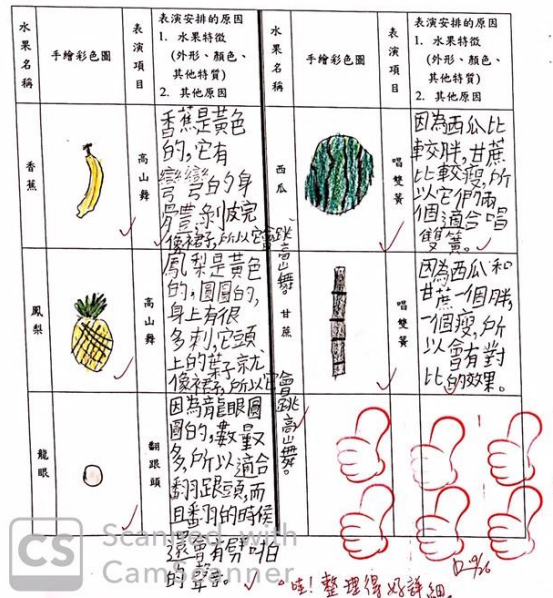 水果名稱
手繪彩色圖
表演項目
表演安排的原因
1. 水果特徵
(外形、顏色、
其他特質)
2. 其他原因
水果名稱
手繪彩色圖
表演項目
表演安排的原因
1. 水果特徵
(外形、顏色、
其他特質)
2. 其他原因
香蕉
高山舞
香蕉是黃色
的,它有
彎彎白的身
體,剝皮完
像裙子,所以它會跳高山舞。
西瓜
唱雙簧
因為西瓜比
較胖,甘蔗
比較瘦,所
以它們兩
個適合唱
雙簧。
鳳梨
高山舞
鳳梨是黃色
的,圓圓的,
身上有很
多刺,它頭
上的葉子就
像裙子,所以它會跳高山舞。
甘蔗
唱雙簧
因為西瓜和
甘蔗一個胖,
一個瘦,所
以會有對
比的效果。
龍眼
翻跟頭
因為龍眼圓
圓的,數量又
多,所以適合
翻跟頭,而
且翻的時候
還會有劈啪
的聲。
哇!整理得好詳細。
CS Scanned with
CamScanner